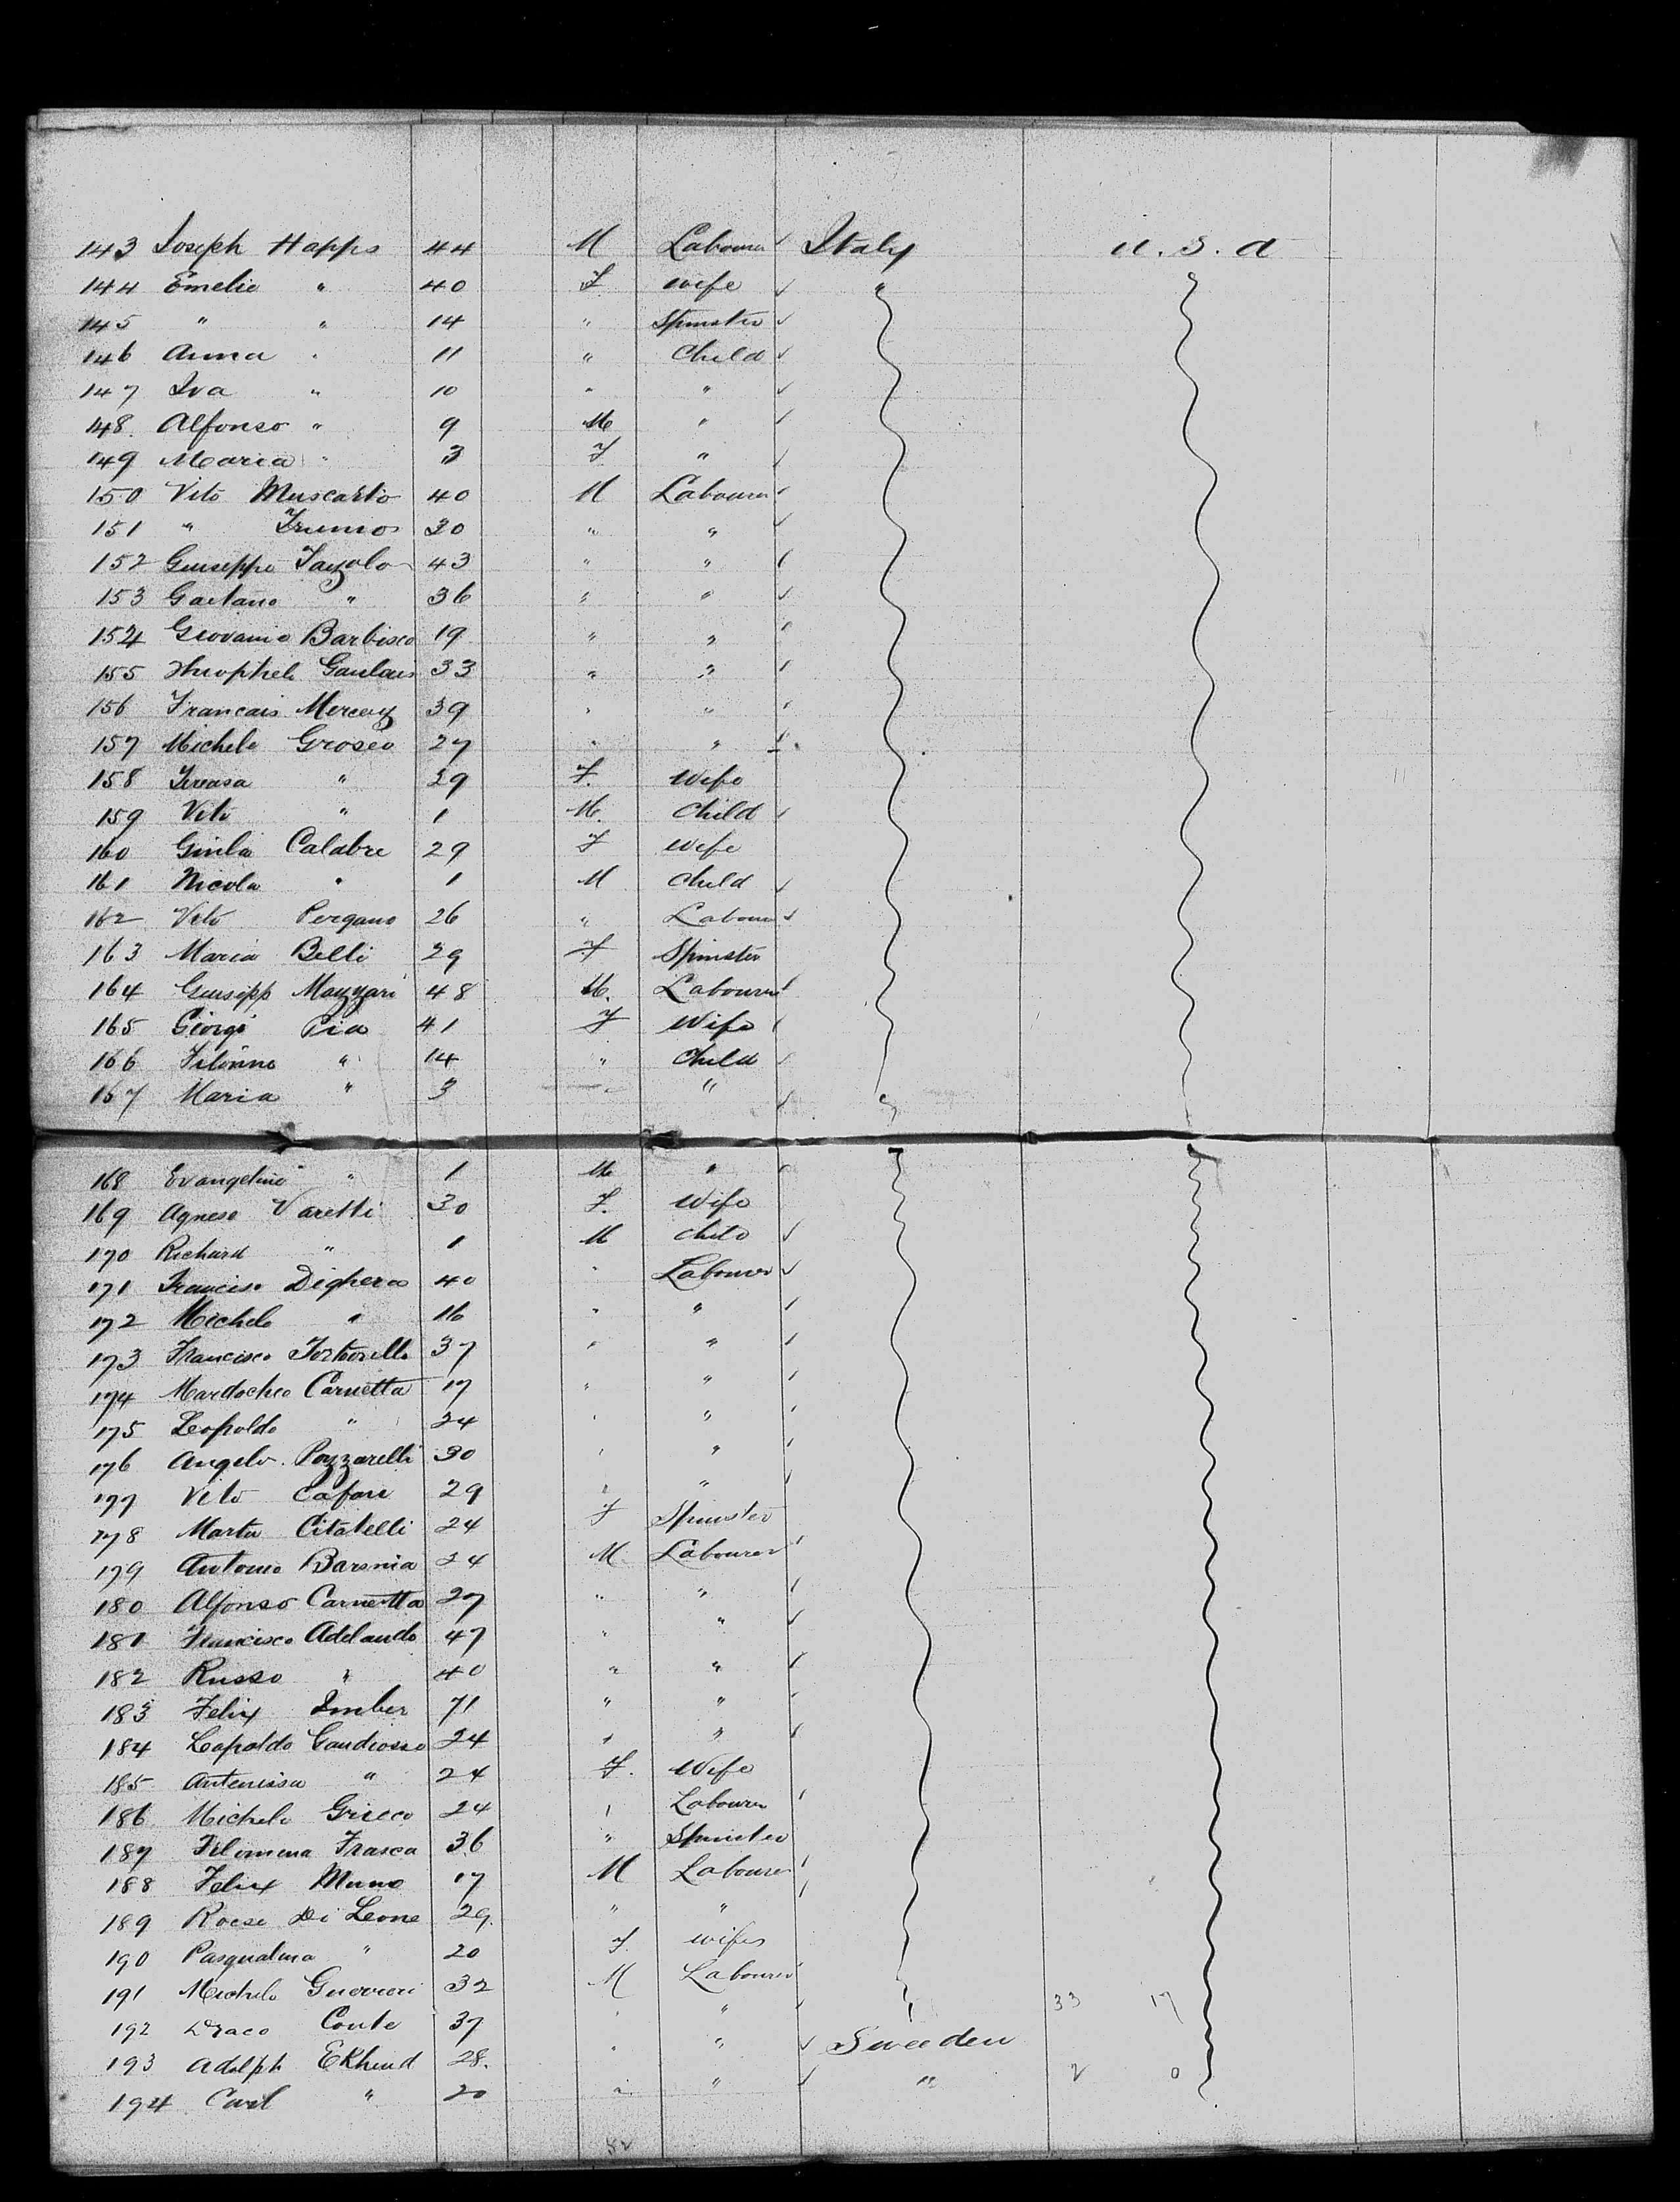 143 Joseph Happs 44 M Labourer Italy U.S.A
144 Emelie " 40 F wife "
145 " " 14 " Spinster
146 Anna " 11 " Child
147 Iva " 10 " "
148 Alfonso " 9 M "
149 Maria " 3 F "
150 Vito Muscarto 40 M Labourer
151 " 30 " "
152 Guiseppe 43 " "
153 Gaetano " 36 " "
154 Giovanio Barbisco 19 " "
155 33 " "
156 Francais Mercey 39 " "
157 Michele Groseo 27 " "
158 Terrasa " 39 F. Wife
159 Vito " 1 M. Child
160 Giula Calabre 29 F Wife
161 Nicola " 1 M Child
162 Vito Pergano 26 " Labourer
163 Maria Belli 29 F Spinster
164 Guisepp Mazzari 48 M. Labourer
165 Giorgi Pia 41 F Wife
166 " 14 " Child
167 Maria " 3 "
168 Evangelino " 1 M "
169 Agnese Varetti 30 F. Wife
170 Richard " 1 M Child
171 Francisco Dighera 40 " Labourer
172 Michele " 16 " "
173 Francisco Tortorello 37 " "
174 Mardocheo Carnetta 17 " "
175 Leopoldo " 24 " "
176 Angelo Pozzarelli 30 " "
177 Vito Cafari 29 " "
178 Marta Citatelli 24 F Spinster
179 Antonio Barsnia 24 M Labourer
180 Alfonso Carnetta 27 " "
181 Francisco Adelando 47 " "
182 Russo " 40 " "
183 Felix Imber 71 " "
184 Leopoldo Gaudiosso 24 " "
185 " 24 F. Wife
186 Michele Grieco 24 " Labourer
187 Filomena Frasca 36 " Spinster
188 Felix Muno 17 M Labourer
189 Di Leone 29. " "
190 Pasqualina " 20 F. wife
191 Michele Guerrieri 32 M Labourer
192 Draco Conte 37 " " 33 17
193 Adolph Ekhund 28. " " Sweeden
194 Carl " 20 " " " 2 0
52